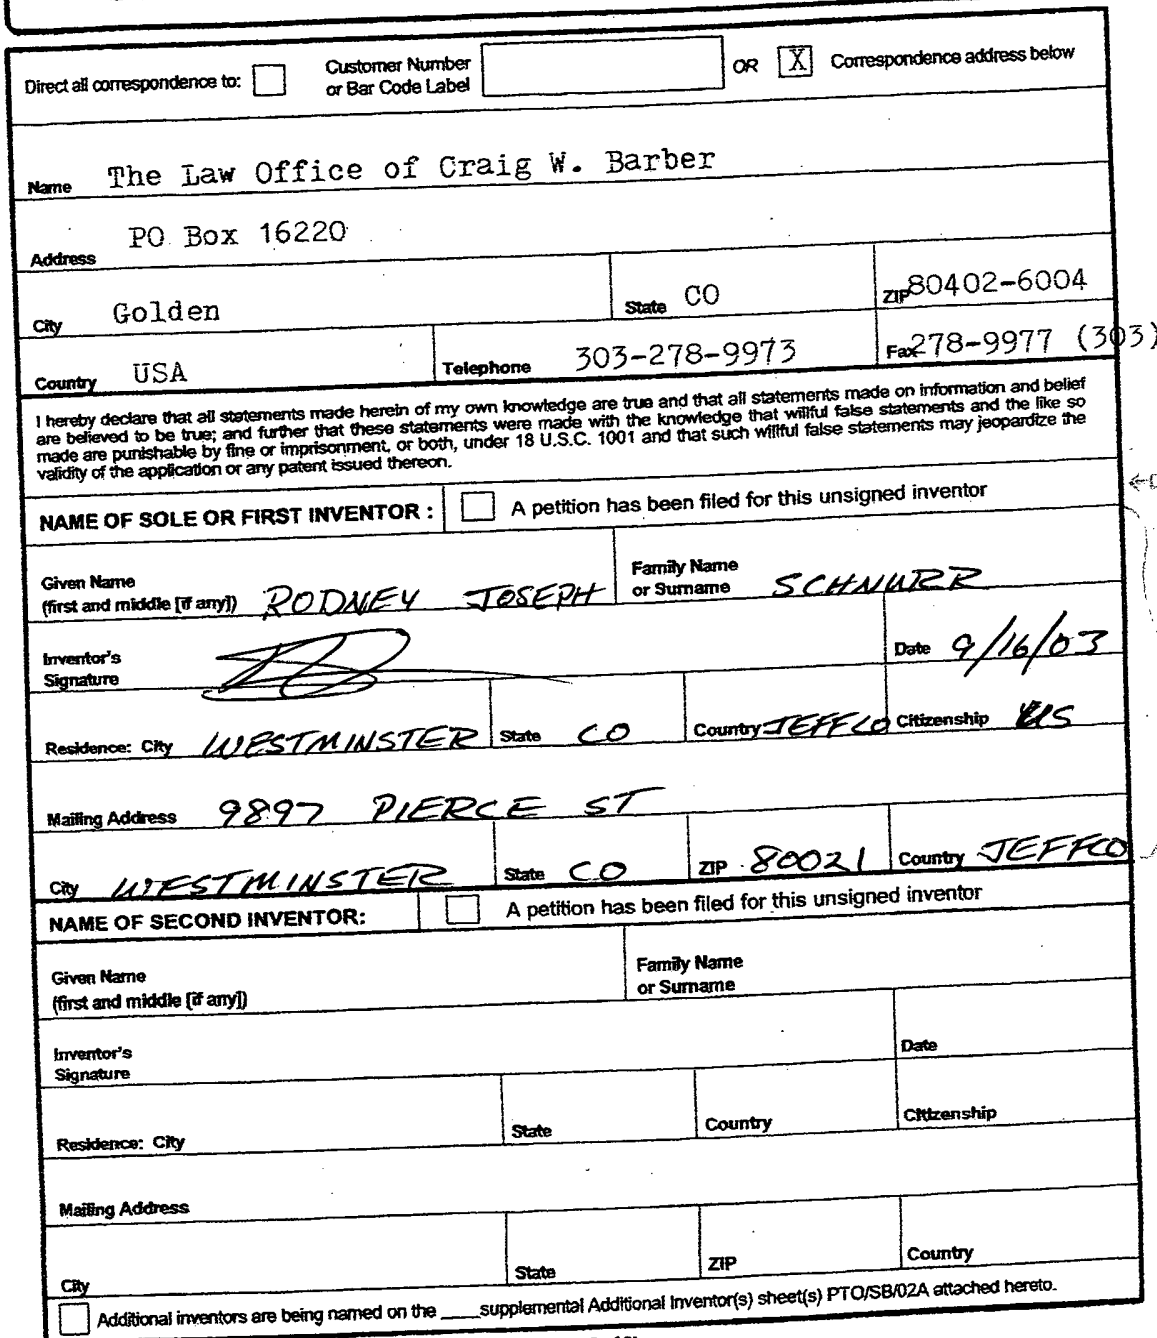 Direct all correspondence to: Customer Number or Bar Code Label OR X Correspondence address below
Name The Law Office of Craig W. Barber
Address PO Box 16220
City Golden State CO ZIP 80402-6004
Country USA Telephone 303-278-9973 Fax 278-9977 (303)
I hereby declare that all statements made herein of my own knowledge are true and that all statements made on information and belief
are believed to be true; and further that these statements were made with the knowledge that willful false statements and the like so
made are punishable by fine or imprisonment, or both, under 18 U.S.C. 1001 and that such willful false statements may jeopardize the
validity of the application or any patent issued thereon.
NAME OF SOLE OR FIRST INVENTOR : A petition has been filed for this unsigned inventor
Given Name
(first and middle [if any]) RODNEY JOSEPH
Family Name
or Surname SCHNURR
Inventor's
Signature
Date 9/16/03
Residence: City WESTMINSTER State CO Country JEFFCO Citizenship US
Mailing Address 9897 PIERCE ST
City WESTMINSTER State CO ZIP 80021 Country JEFFCO
NAME OF SECOND INVENTOR: A petition has been filed for this unsigned inventor
Given Name
(first and middle [if any])
Family Name
or Surname
Inventor's
Signature
Date
Residence: City State Country Citizenship
Mailing Address
City State ZIP Country
Additional inventors are being named on the ____supplemental Additional Inventor(s) sheet(s) PTO/SB/02A attached hereto.